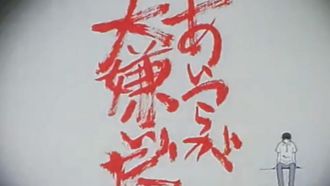 あいつらが
大嫌いだ